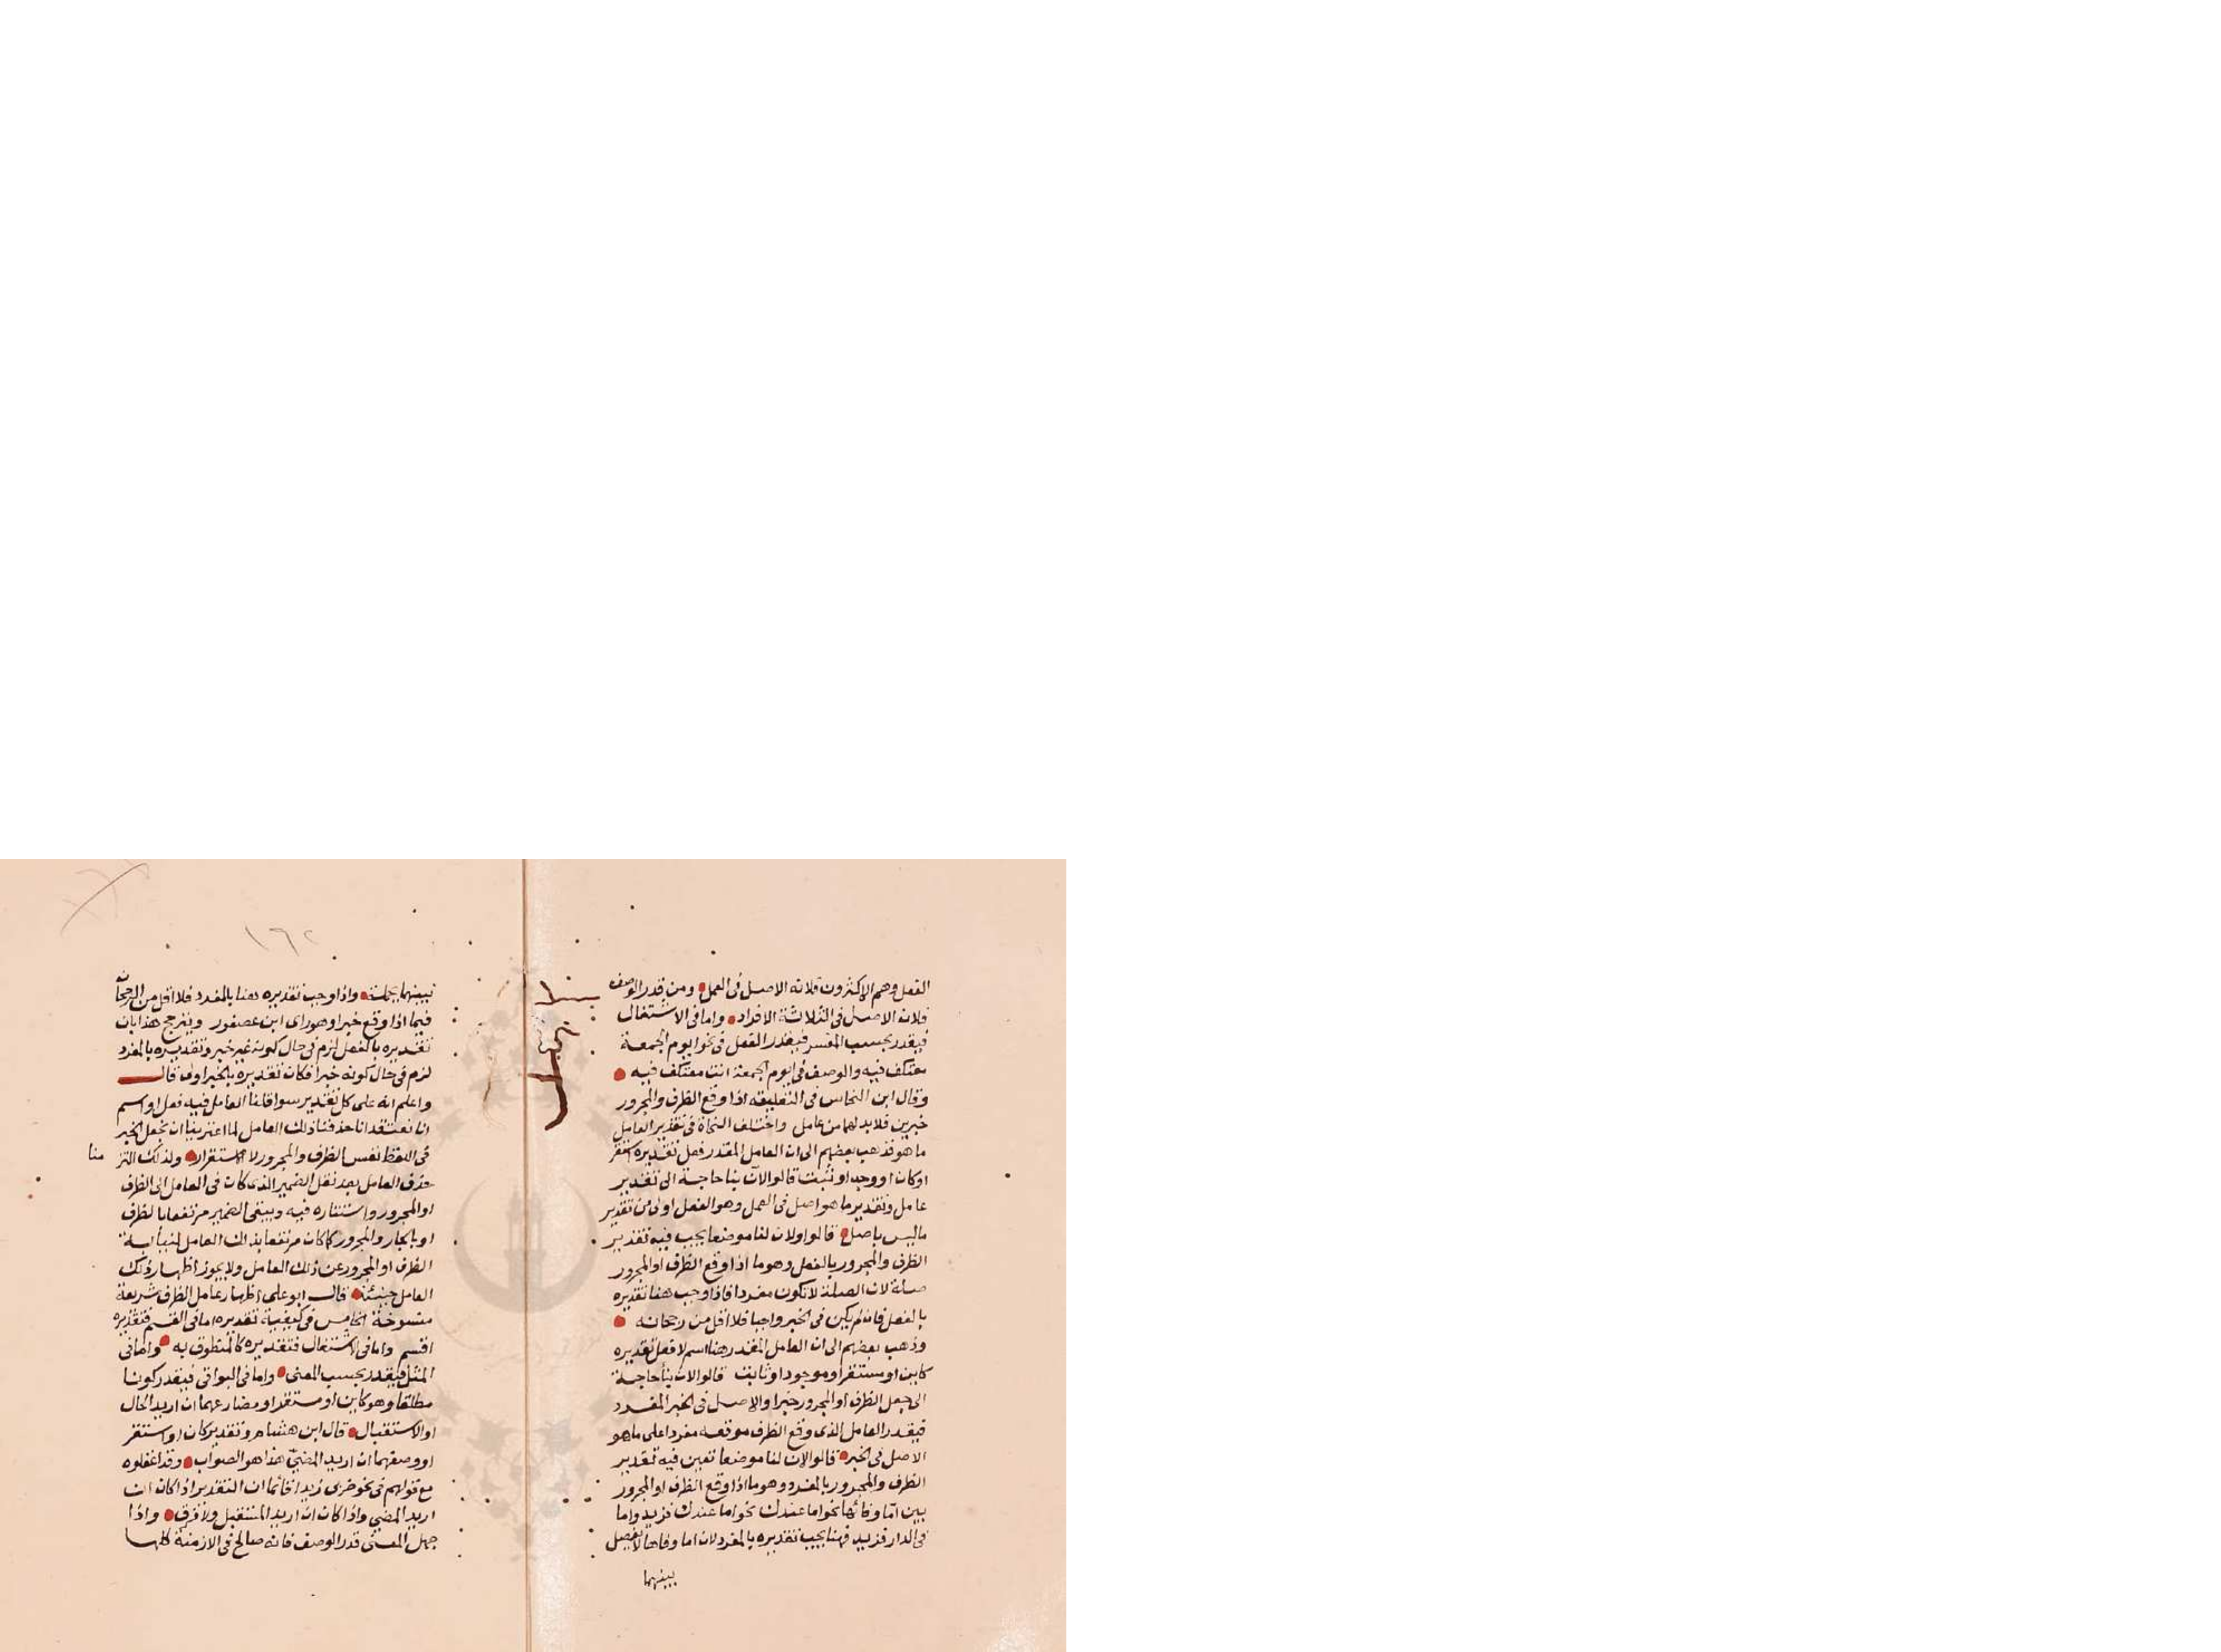 الفعل وهم الاكثرون فلانه الاصل فى العمل ومن قدر الوصف
فلانه الاصل فى الثلاثة الافراد واما فى الاشتغال
فيقدر بحسب المفسر فيقدر الفعل فى نحو ايوم الجمعة
معتكف فيه والوصف فى ايوم الجمعة انت معتكف فيه
وقال ابن النحاس فى التعليقه اذا وقع الظرف والمجرور
خبرين فلا بد لهما من عامل واختلف النحاة فى تقدير العامل
ما هو فذهب بعضهم الى ان العامل المقدر فعل تقديره استقر
اوكان او وجد او ثبت قالوا لان بنا حاجة الى تقدير
عامل وتقدير ما هو اصل فى العمل وهو الفعل اولى من تقدير
ماليس باصل قالوا ولان لنا موضعا يجب فيه تقدير
الظرف والمجرور بالفعل وهو ما اذا وقع الظرف او المجرور
صلة لان الصلة لا تكون مفردا فاذا وجب هنا تقديره
بالفعل فان لم يكن فى الخبر واجبا فلا اقل من رجحانه
وذهب بعضهم الى ان العامل المقدر هنا اسم لا فعل تقديره
كاين او مستقر او موجود او ثابت قالوا لان بنا حاجة
الى جعل الظرف او المجرور خبرا والاصل فى الخبر المفرد
فيقدر العامل الذى وقع الظرف موقعه مفردا على ما هو
الاصل فى الخبر قالوا لان لنا موضعا تعين فيه تقدير
الظرف والمجرور بالمفرد وهو ما اذا وقع الظرف او المجرور
بين اما وفائها نحو اما عندك نحو اما عندك فزيد واما
فى الدار فزيد فهنا يجب تقديره بالمفرد لان اما وفاها لا يفصل
بينهما
بينهما بجملة واذا وجب تقديره هنا بالمفرد فلا اقل من الرجحان
فيما اذا وقع خبرا وهو راى ابن عصفور ويترجح هذا بان
تقديره بالفعل لزم فى حال كونه غير خبر وتقديره بالمفرد
لزم فى حال كونه خبرا فكان تقديره بالخبر اولى قال
واعلم انه على كل تقدير سوا قلنا العامل فيه فعل او اسم
انا نعتقد انا حذفنا ذلك العامل لما اعتزمنا ان نجعل الخبر
فى اللفظ نفس الظرف والمجرور لا الاستقرار ولذلك التز منا
حذف العامل بعد نقل الضمير الذى كان فى العامل الى الظرف
او المجرور واستتاره فيه ويبقى الضمير مرتفعا بالظرف
او بالجار والمجرور كما كان مرتفعا بذلك العامل لنيابة
الظرف او المجرور عن ذلك العامل ولا يجوز اظهار ذلك
العامل حينئذ قال ابو على اظهار عامل الظرف شريعة
منسوخة الخامس فى كيفية تقديره اما فى القسم فتقديره
اقسم واما فى الاشتغال فتقديره كالمنطوق به واما فى
المثل فيقدر بحسب المعنى واما فى البواقى فيقدر كونا
مطلقا وهو كاين او مستقر او مضارعهما ان اريد الحال
او الاستقبال قال ابن هشام وتقدير كان او استقر
او وصفهما ان اريد المضى هذا هو الصواب وقد اغفلوه
مع قولهم فى نحو ضربى زيدا قائما ان التقدير اذا كان ان
اريد المضى واذا كان ان اريد المستقبل ولا فرق واذا
جهل المعنى قدر الوصف فانه صالح فى الازمنة كلها